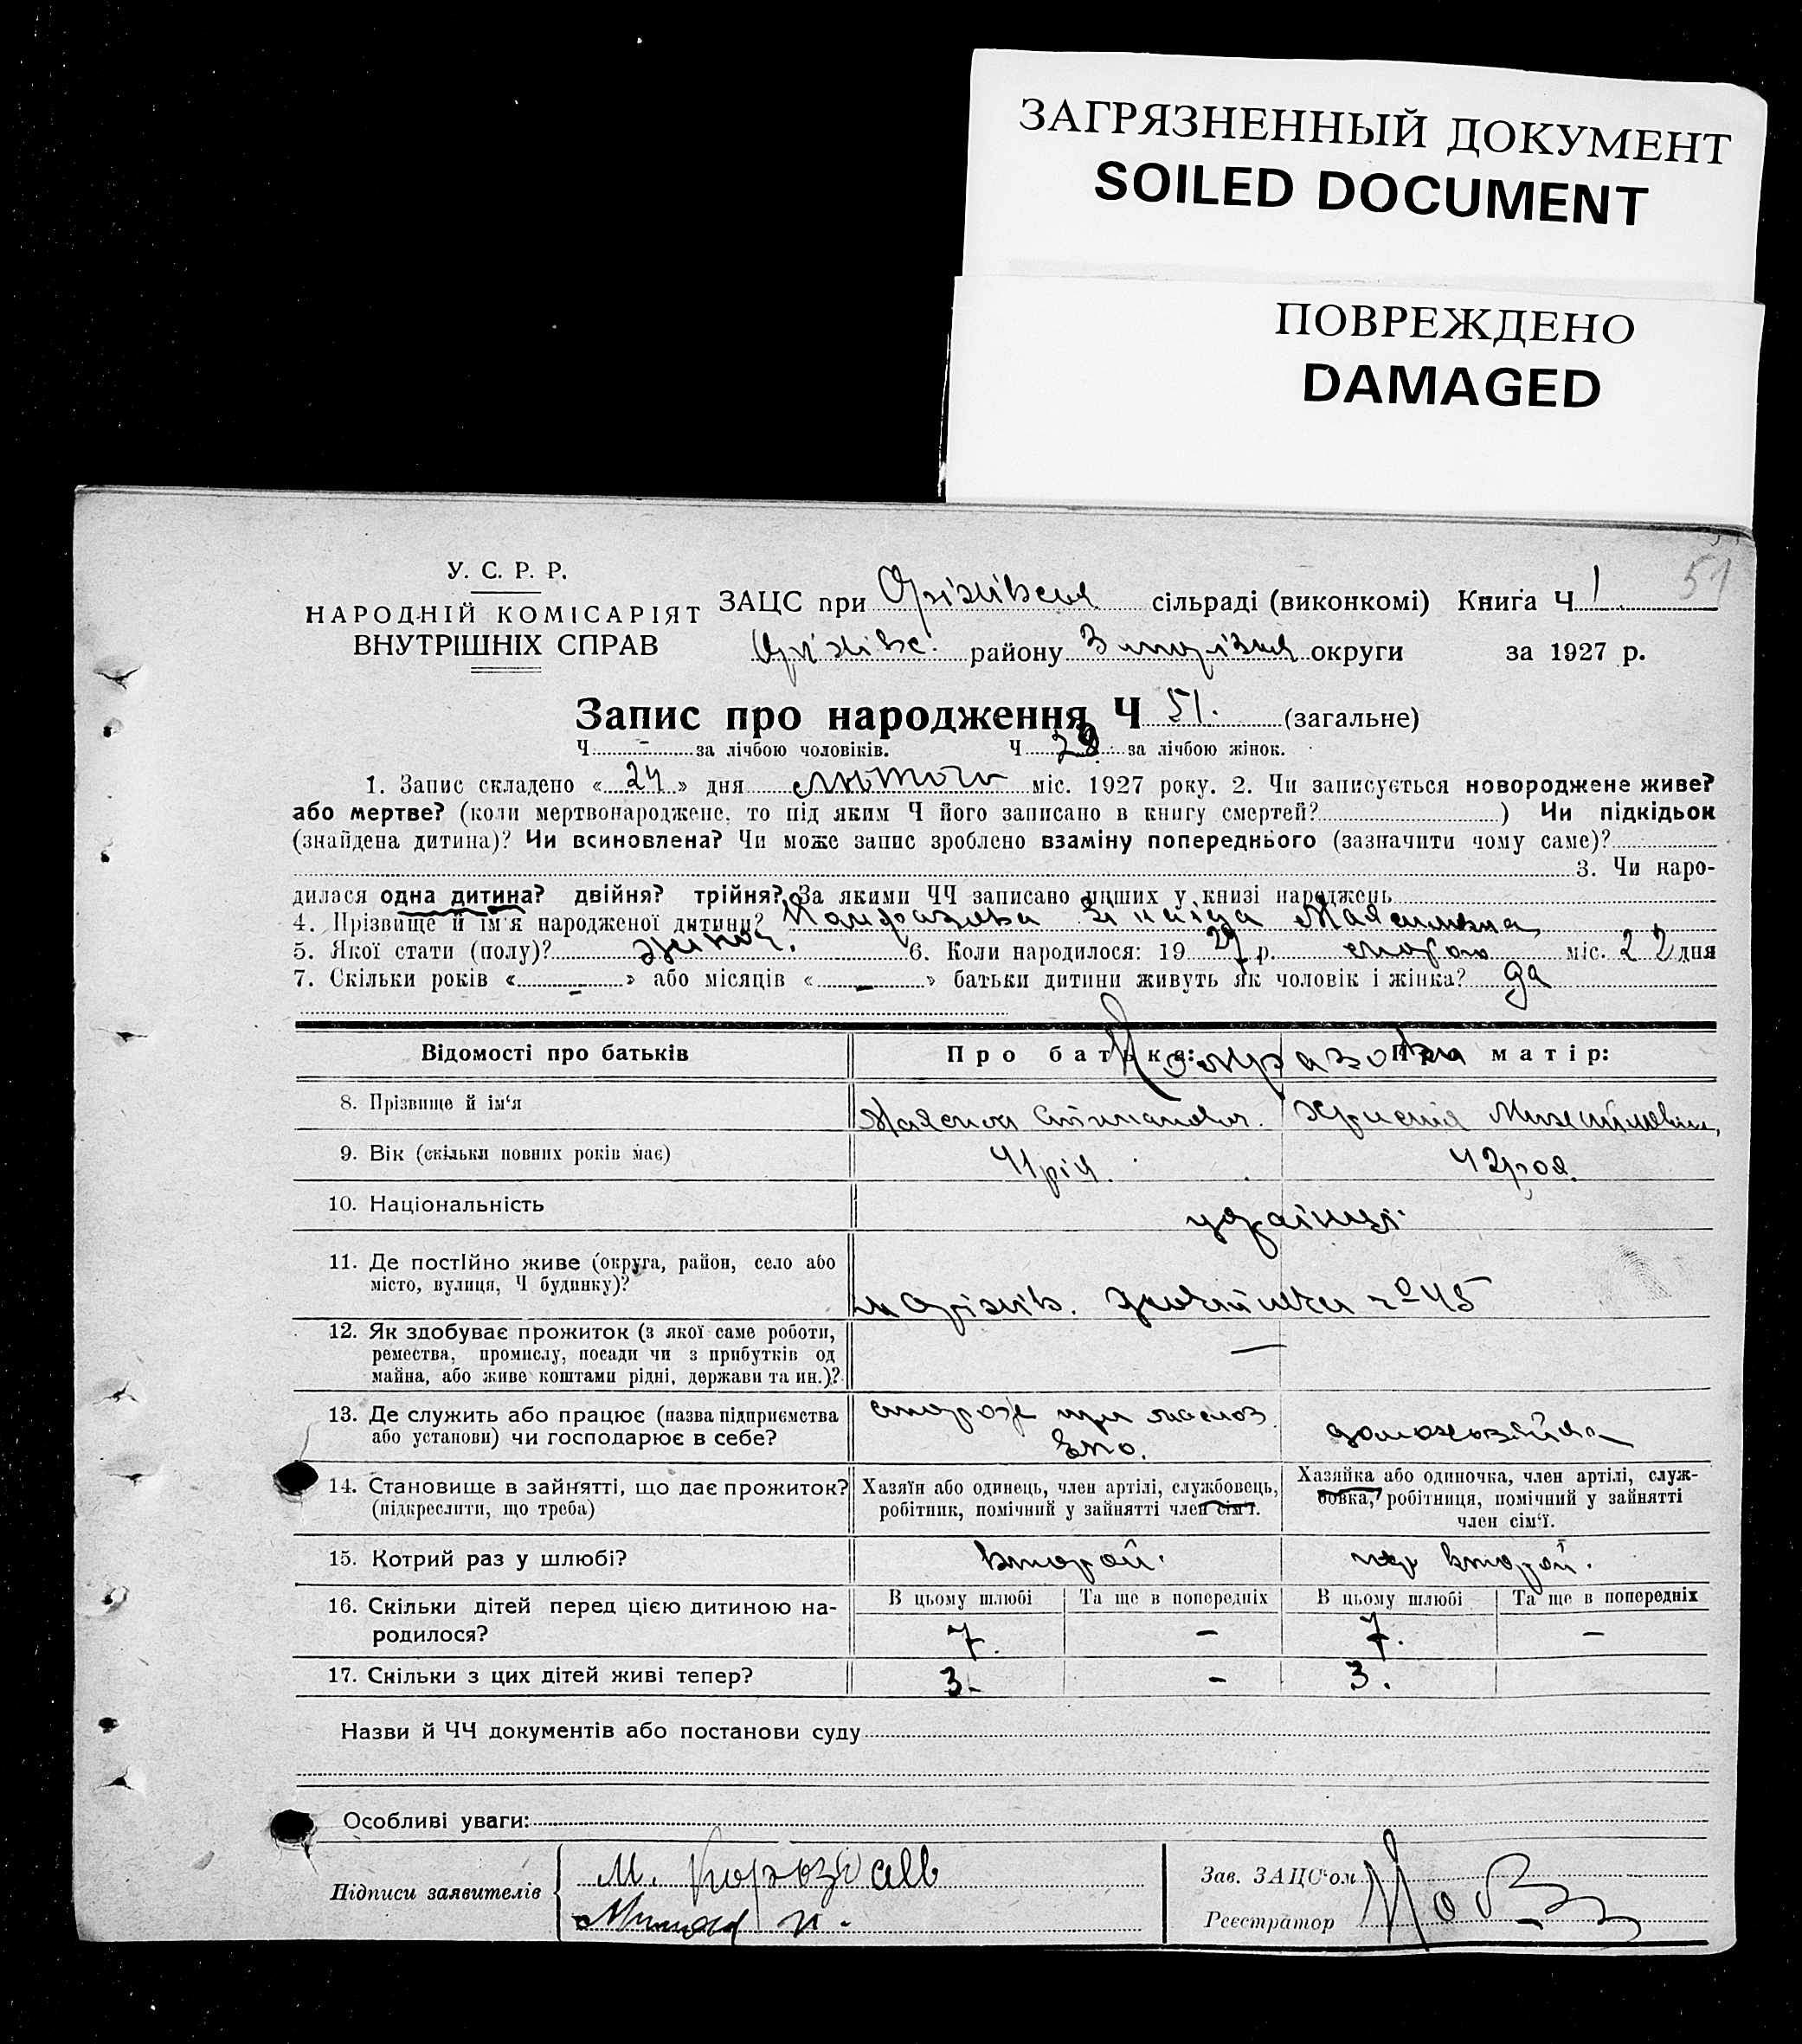 ЗАГРЯЗНЕННЫЙ ДОКУМЕНТ
SOILED DOCUMENT
ПОВРЕЖДЕНО
DAMAGED
51
У. С. Р. Р.
НАРОДНІЙ КОМІСАРІЯТ
ВНУТРІШНІХ СПРАВ
ЗАЦС при Оріхівськ сільраді (виконкомі) Книга Ч 1.
Оріхівс. району Запорізьк округи за 1927 р.
Запис про народження Ч 51. (загальне)
Ч - за лічбою чоловіків. Ч 28. за лічбою жінок.
1. Запис складено « 24 » дня лютого міс. 1927 року. 2. Чи записується новороджене живе?
або мертве? (коли мертвонароджене, то під яким Ч його записано в книгу смертей? ) Чи підкідьок
(знайдена дитина)? Чи всиновлена? Чи може запис зроблено взаміну попереднього (зазначити чому саме)?
3. Чи наро-
дилася одна дитина? двійня? трійня? За якими ЧЧ записано инших у книзі народжень
4. Прізвище й ім'я народженої дитини? Зінаіда Максимовна
5. Якої стати (полу)? жіноч. 6. Коли народилося: 19 27 р. міс. 22 дня
7. Скільки років « - » або місяців « - » батьки дитини живуть як чоловік і жінка? да
Відомості про батьків Про батька: Про матір:
8. Прізвище й ім'я Максим Степанович. Христія Михайловна,
9. Вік (скільки повних років має) 41 рік. 42 рок.
10. Національність українці.
11. Де постійно живе (округа, район, село або
місто, вулиця, Ч будинку)?
м Оріхів. № 45
12. Як здобуває прожиток (з якої саме роботи, —
ремества, промислу, посади чи з прибутків од
майна, або живе коштами рідні, держави та ин.)?
13. Де служить або працює (назва підприємства сторож при
або установи) чи господарює в себе? домохозяйка
14. Становище в зайнятті, що дає прожиток?
(підкреслити, що треба)
Хазяїн або одинець, член артілі, службовець,
робітник, помічний у зайнятті член сім'ї.
Хазяйка або одиночка, член артілі, служ-
бовка, робітниця, помічний у зайнятті
член сім'ї.
15. Котрий раз у шлюбі? второй. второй.
16. Скільки дітей перед цією дитиною на-
родилося?
В цьому шлюбі Та ще в попередніх В цьому шлюбі Та ще в попередніх
7. - 7. -
17. Скільки з цих дітей живі тепер? 3. - 3.
Назви й ЧЧ документів або постанови суду
Особливі уваги:
Підписи заявителів М.
Зав. ЗАЦС'ом
Реєстратор